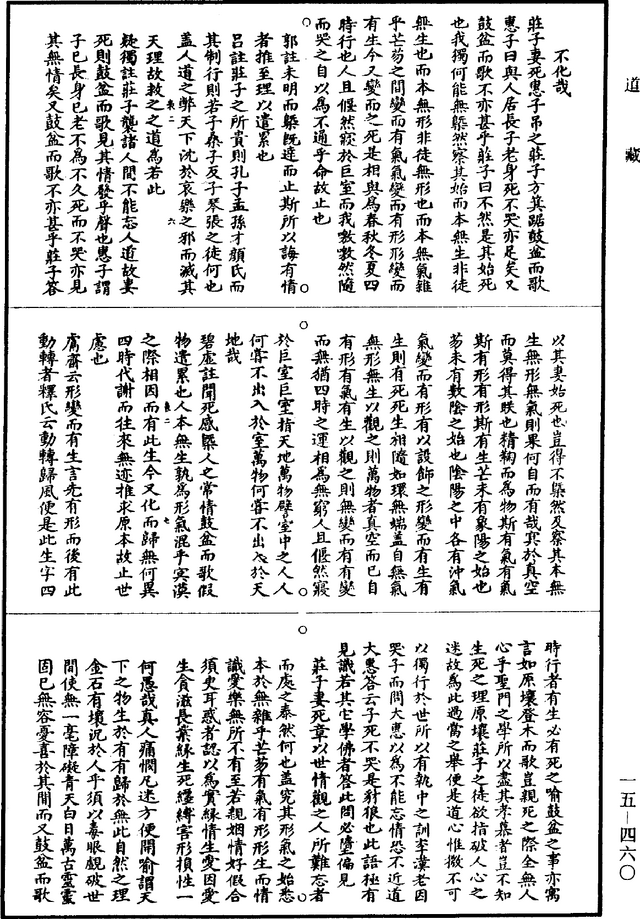 道藏
不化哉
莊子妻死惠子弔之莊子方箕踞鼓盆而歌
惠子曰與人居長子老身死不哭亦足矣又
鼓盆而歌不亦甚乎莊子曰不然是其始死
也我獨何能無槩然察其始而本無生非徒
無生也而本無形非徒無形也而本無氣雜
乎芒芴之間變而有氣氣變而有形形變而
有生今又變而之死是相與為春秋冬夏四
時行也人且偃然寢於巨室而我噭噭然隨
而哭之自以為不通乎命故止也
郭註未明而槩既達而止斯所以誨有情
者推至理以遣累也
呂註莊子之所貴則孔子孟孫才顏氏而
其制行則若子桑子反子琴張之徒何也
蓋人道之弊天下沈於哀樂之邪而滅其
天理故救之之道為若此
疑獨註莊子襲諸人間不能忘人道故妻
死則鼓盆而歌見其情發乎聲也惠子謂
子已長身已老不為不久死而不哭亦見
其無情矣又鼓盆而歌不亦甚乎莊子答
以其妻始死也豈得不槩然及察其本無
生無形無氣則果何自而有哉冥於真空
而莫得其眹也精鞠而為物斯有氣有氣
斯有形有形斯有生芒未有象陽之始也
芴未有數陰之始也陰陽之中各有沖氣
氣變而有形有以設飾之形變而有生有
生則有死死生相隨如環無端蓋自無氣
無形無生以觀之則萬物者真空而已自
有形有氣有生以觀之則無變而有有變
而無猶四時之運相為無窮人且偃然寢
於巨室巨室指天地萬物譬室中之人人
何嘗不出入於室萬物何嘗不出入於天
地哉
碧虛註聞死感槩人之常情鼓盆而歌假
物遣累也人本無生孰為形氣混乎冥漠
之際相因而有此生今又化而歸無何異
四時代謝而往來無迹推求原本故止世
慮也
鬳齋云形變而有生言先有形而後有此
動轉者釋氏云動轉歸風便是此生字四
時行者有生必有死之喻鼓盆之事亦寓
言如原壤登木而歌豈親死之際全無人
心乎聖門之學所以盡其孝慕者豈不知
生死之理原壤莊子之徒欲指破人心之
迷故為此過當之舉便是道心惟微不可
以獨行於世所以有執中之訓李漢老因
哭子而問大惠以為不能忘情恐不近道
大惠答云子死不哭是豺狼也此語極有
見識若其它學佛者答此問必墮偏見
莊子妻死章以世情觀之人所難忘者
而處之泰然何也蓋究其形氣之始悉
本於無雜乎芒芴有氣有形形生而情
識愛樂無所不有至若親姻情好假合
須臾耳惑者認以為實緣情生愛因愛
生貪滋長業緣生死纏縛害形損性一
何愚哉真人痛憫尼迷方便開喻謂天
下之物生於有有歸於無此自然之理
金石有壞況於人乎須以毒眼覷破世
間使無一毫障礙青天白日萬古靈靈
固已無容憂喜於其間而又鼓盆而歌
一五—四六〇